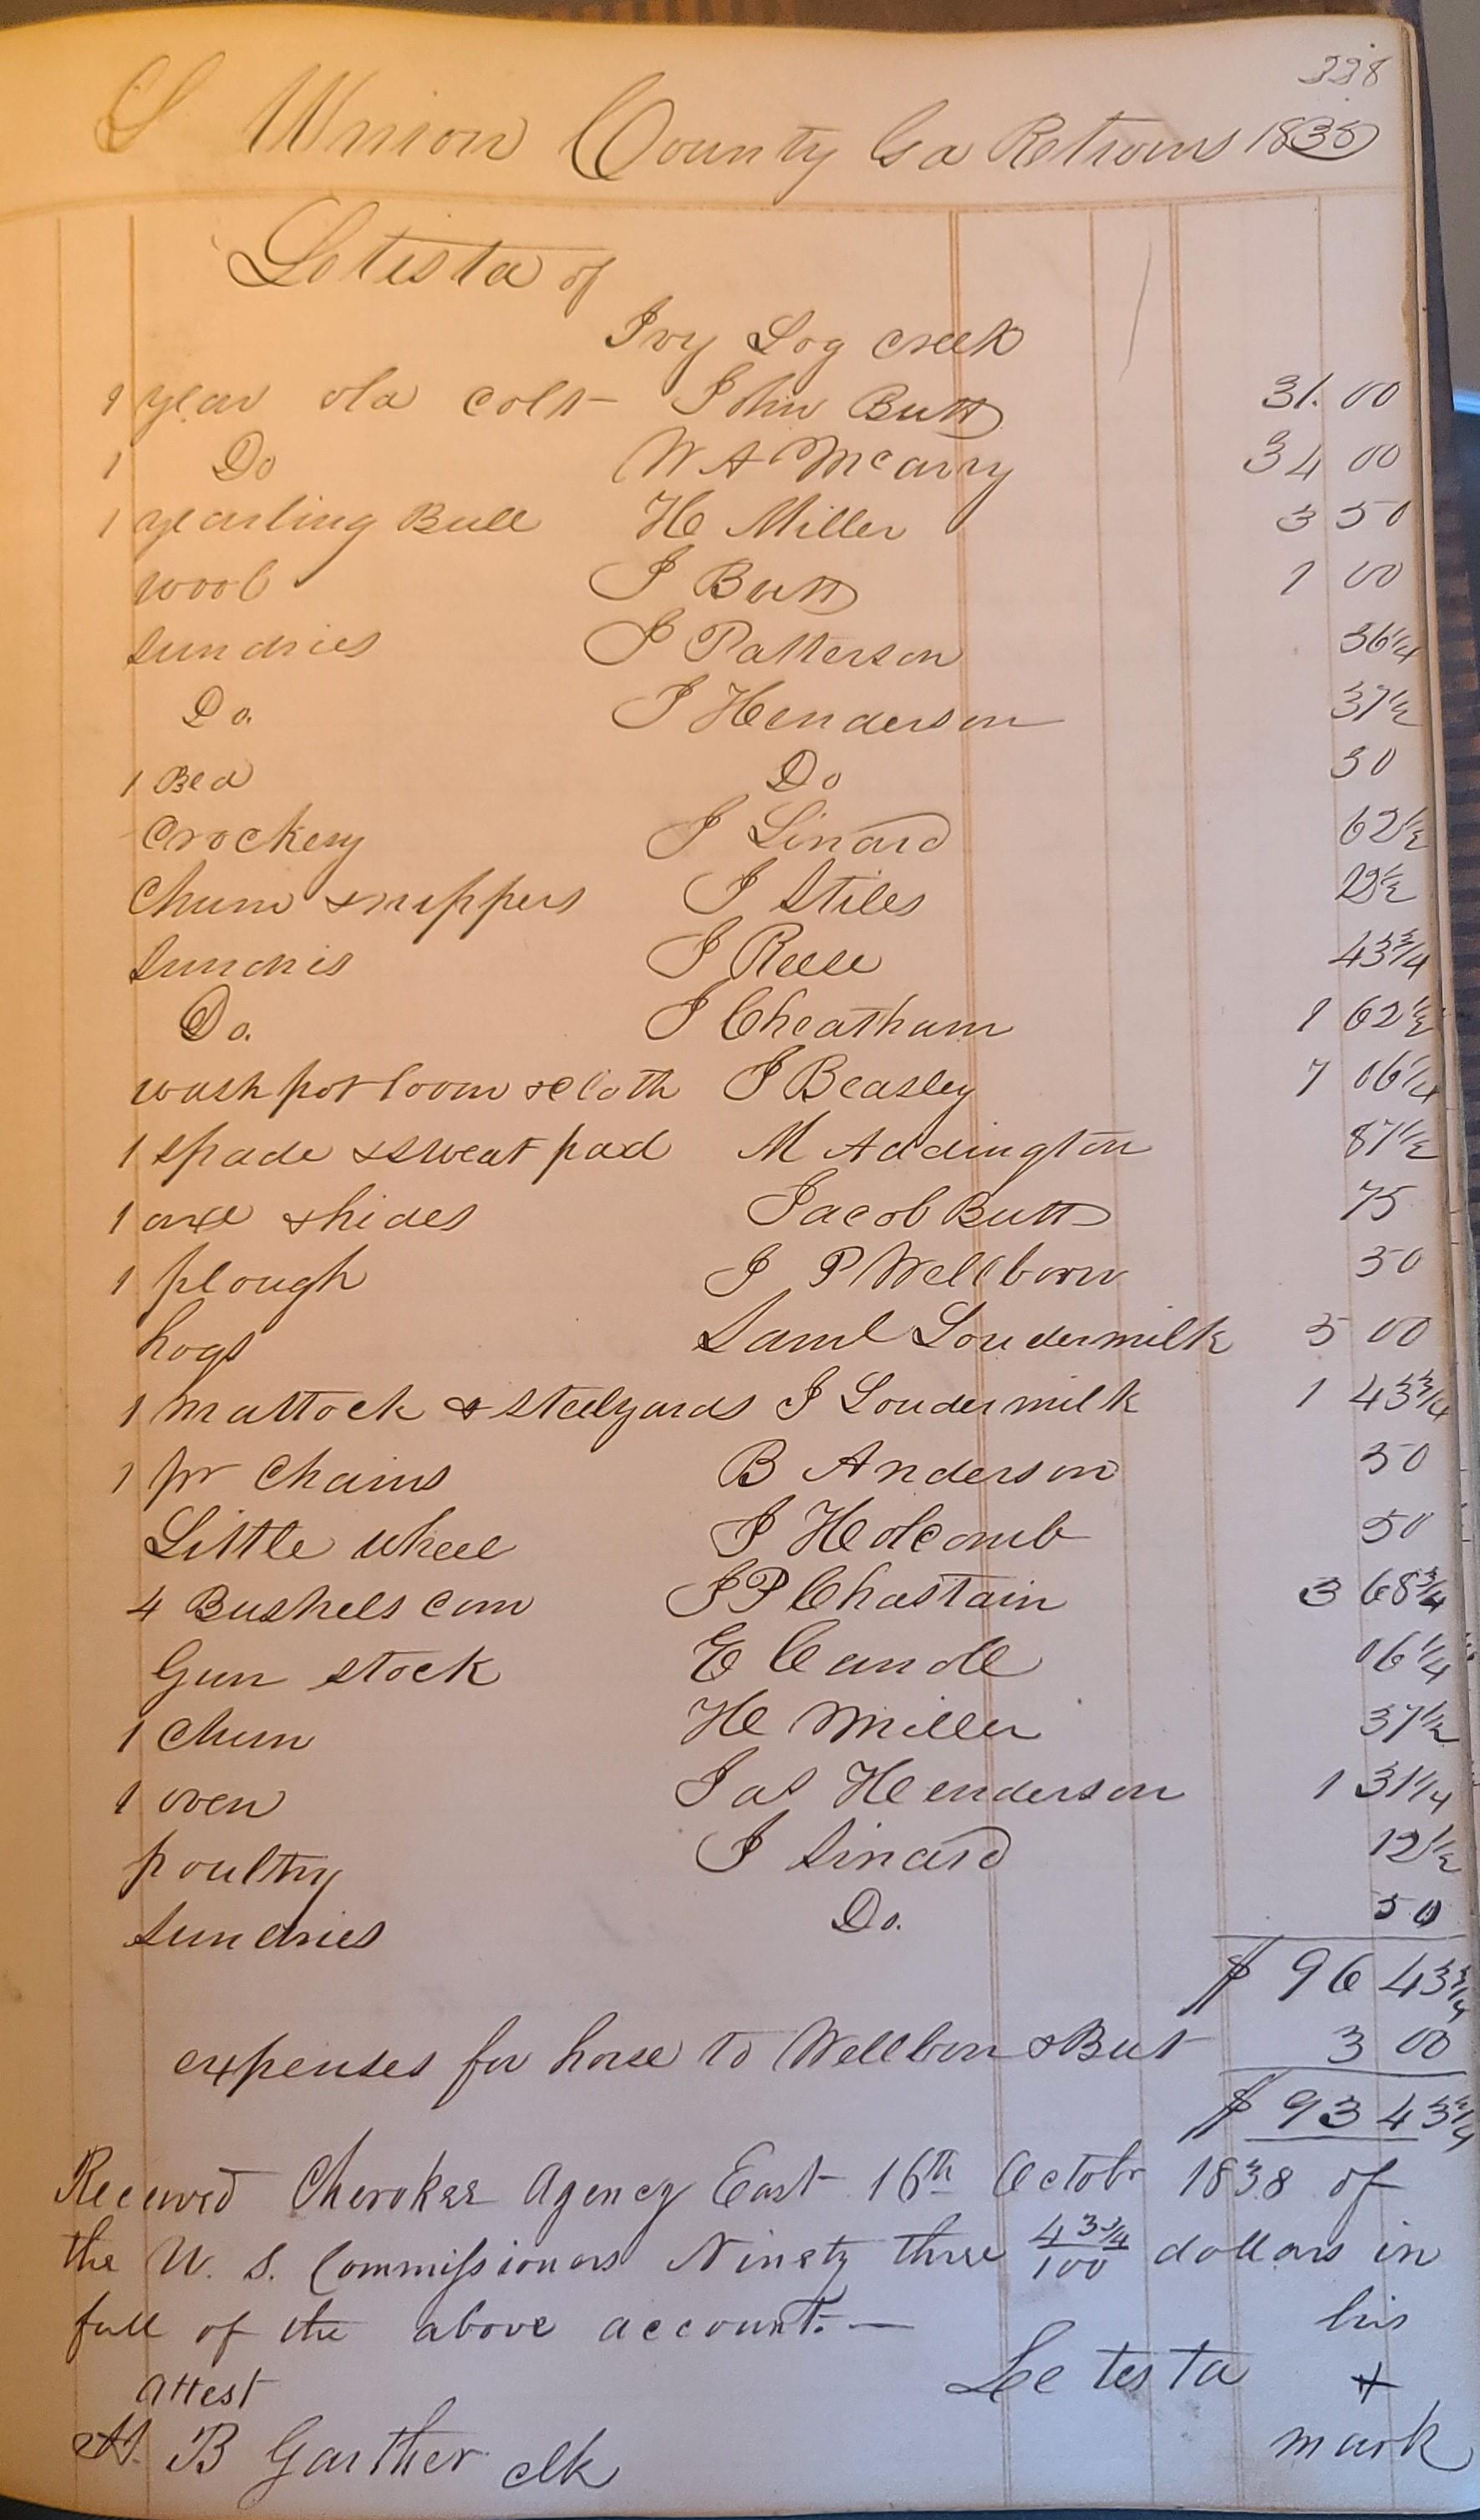 338
S Union County Ga Retrouns 1838
Lotista of
Ivy Log creek
1 year old colt John Butt 31.00
1 Do W A McCarry 34 00
1 yearling Bull H Miller 3 50
wool J Butt 1 00
Sundries J Patterson 36 1/4
Do. J Henderson 37 1/2
1 Bed Do 50
Crockery J Linard 62 1/2
Churn & nippers J Stiles
Sundris J Reese 43 3/4
Do. J Cheatham 1 62 1/2
wash pot loom & cloth J Beasley 7 06 1/4
1 spade & sweat pad M Addington 87 1/2
1 axe & hides Jacob Butt 75
1 plough J P Wellborn 50
hogs Saml Loudermilk 5 00
1 Mattock & Steelyards J Loudermilk 1 43 3/4
1 pr Chains B Anderson 50
Little wheel J Holcomb 50
4 Bushels corn J P Chastain 3 68 3/4
Gun stock E 06 1/4
1 Churn H Miller 37 1/2
1 oven Jas Henderson 1 31 1/4
poultry J Linard 12 1/2
Sundries Do. 50
$ 96 43 3/4
expenses for horse to Wellborn & But 3 00
$ 93 43 3/4
Received Cherokee Agency East 16th Octobr 1838 of
the U. S. Commissioners Ninety three 43 3/4/100 dollars in
full of the above account.—
his
Attest Lee tes ta +
mark
H. B Gaither clk